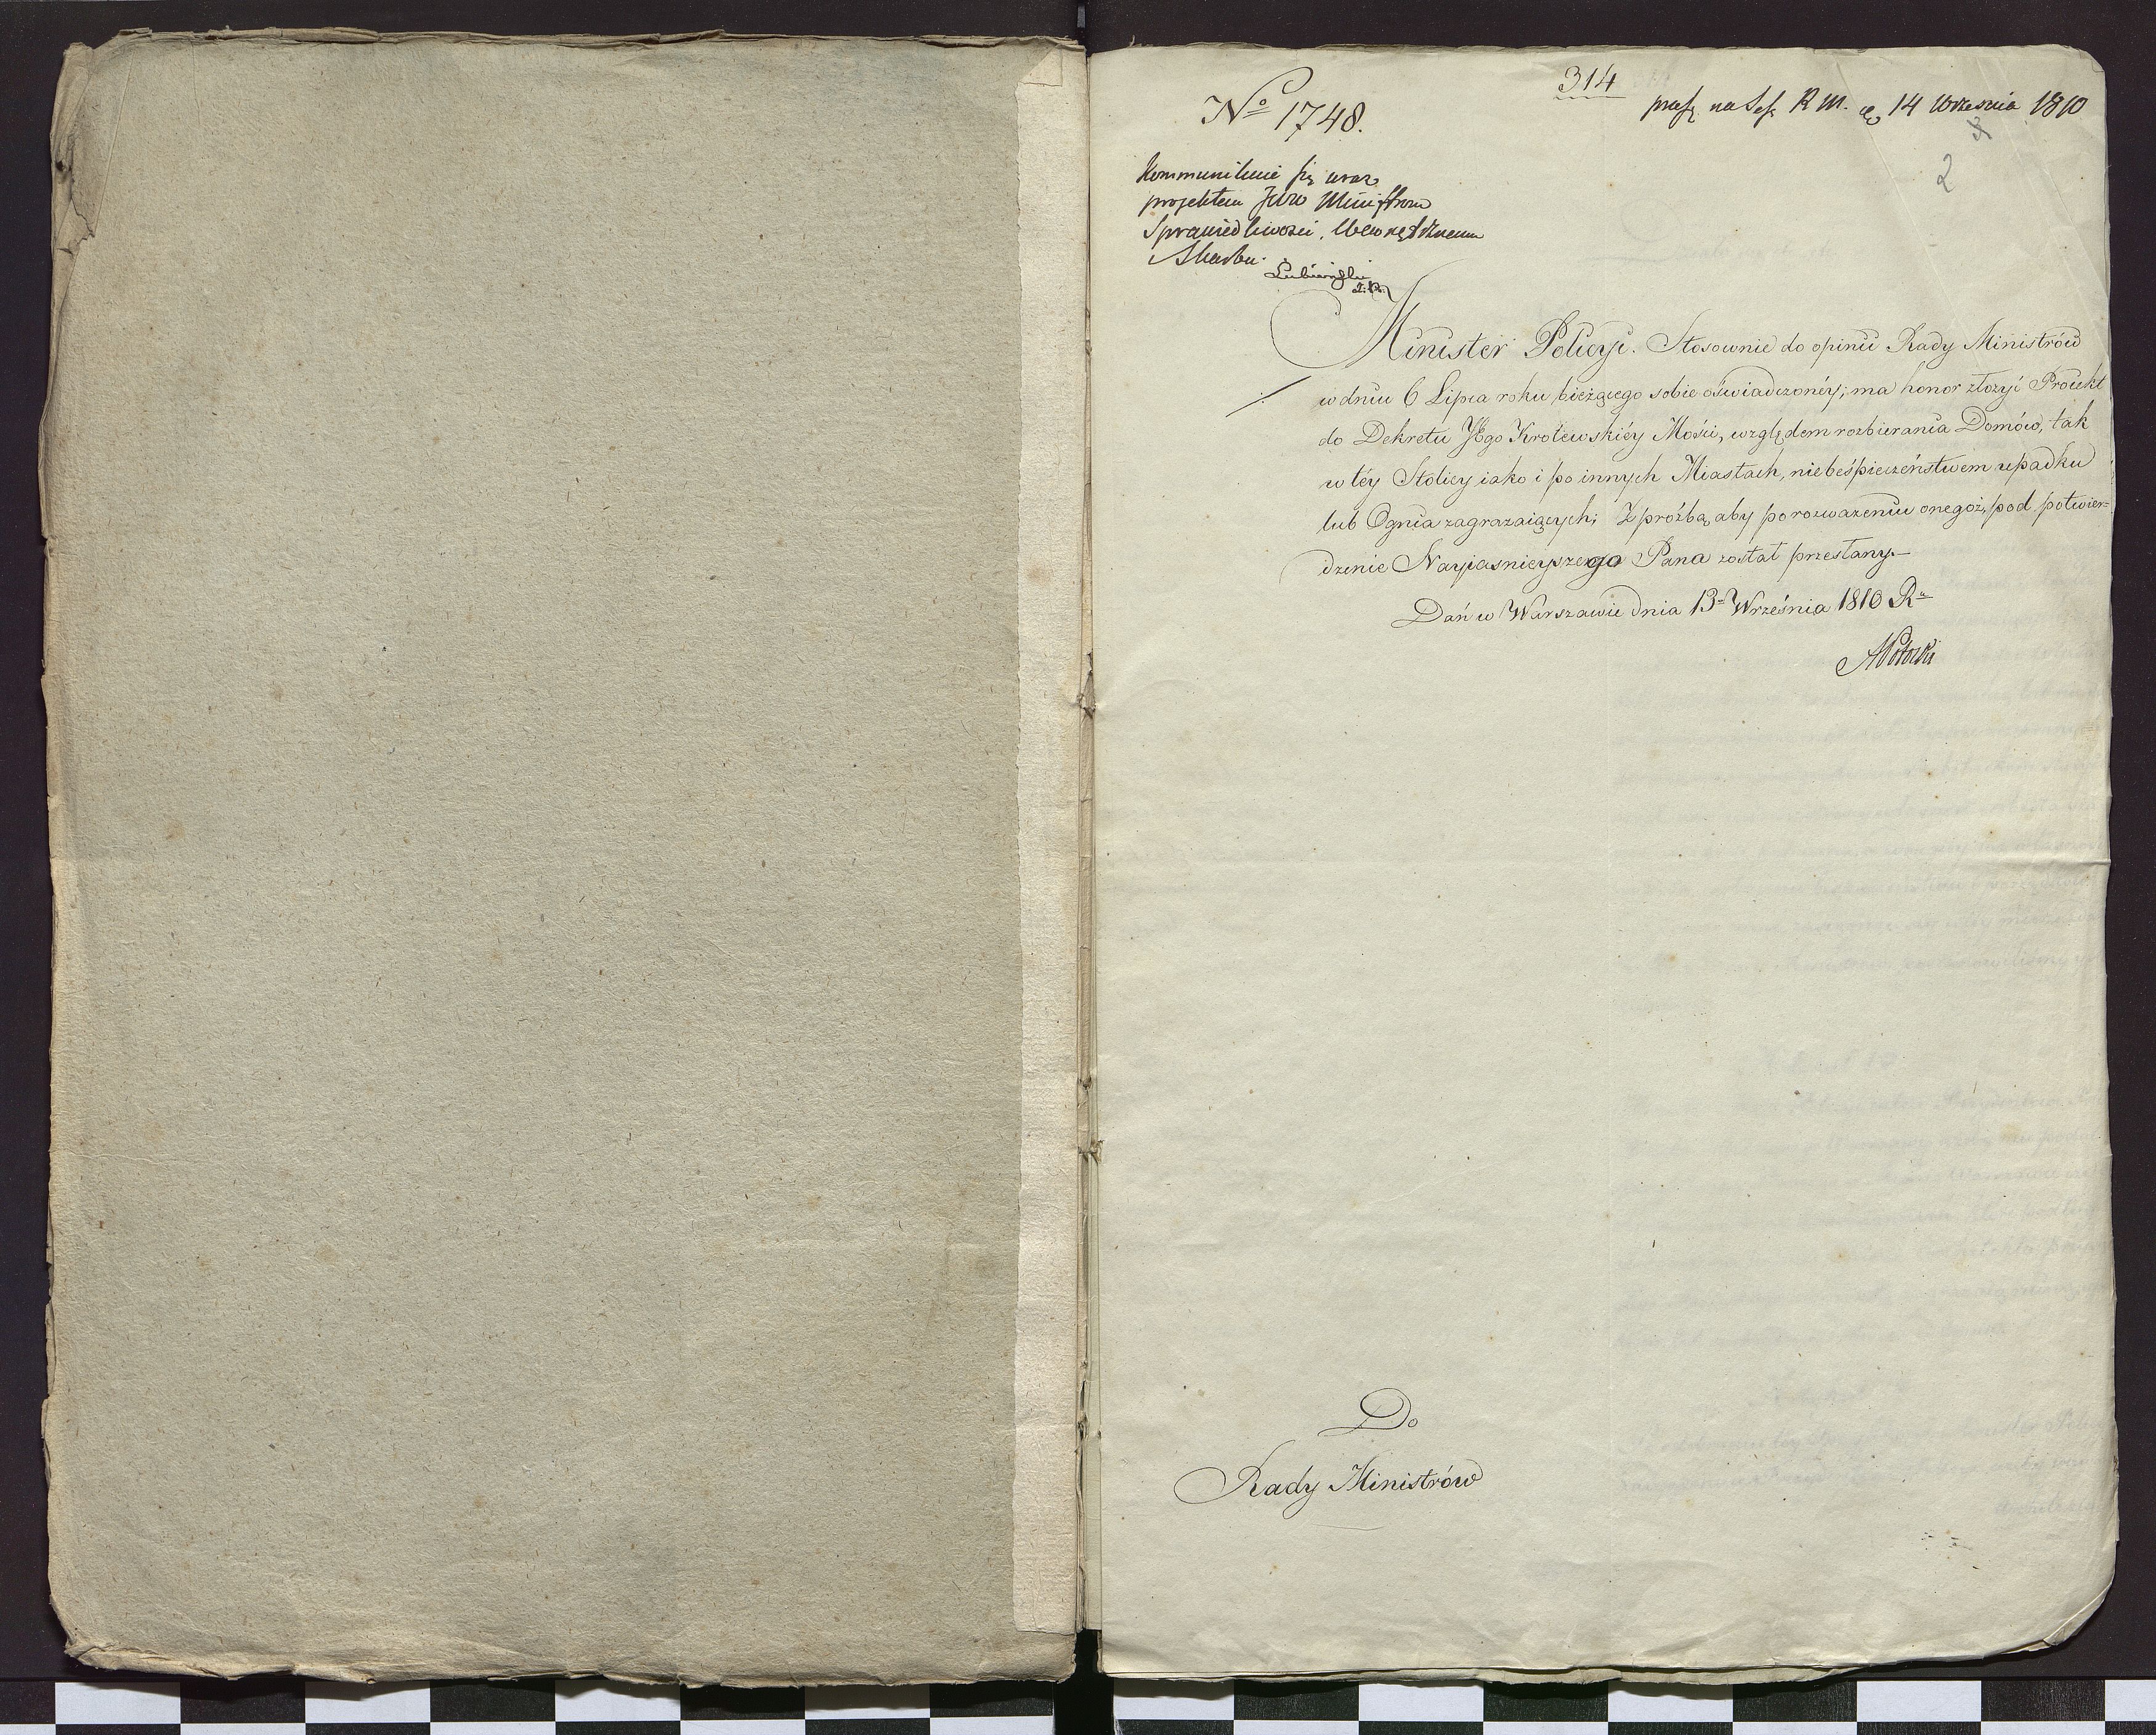 314
No 1748.
pras. na Sess. R M. d. 14 Września 1810
2
Kommunikuie się wraz
projektem JWW Ministrom
Sprawiedliwości, Wewnętrznemu
Skarbu.
Łubieński
Minister Policyi. Stosownie do opinii Rady Ministrów
w dniu 6 Lipca roku bieżącego sobie oświadczonéy; ma honor złożyć Proiekt
do Dekretu JEgo Krolewskiéy Mości, względem rozbierania Domów, tak
w téy Stolicy iako i po innych Miastach, niebeśpieczeństwem upadku
lub Ognia zagrażaiących; Z proźbą, aby po rozważeniu onegoż, pod potwier=
dzenie Nayiasnieyszego Pana został przesłany.—
Dań w Warszawie dnia 13º Września 1810 Ru
APotocki
Do
Rady Ministrów